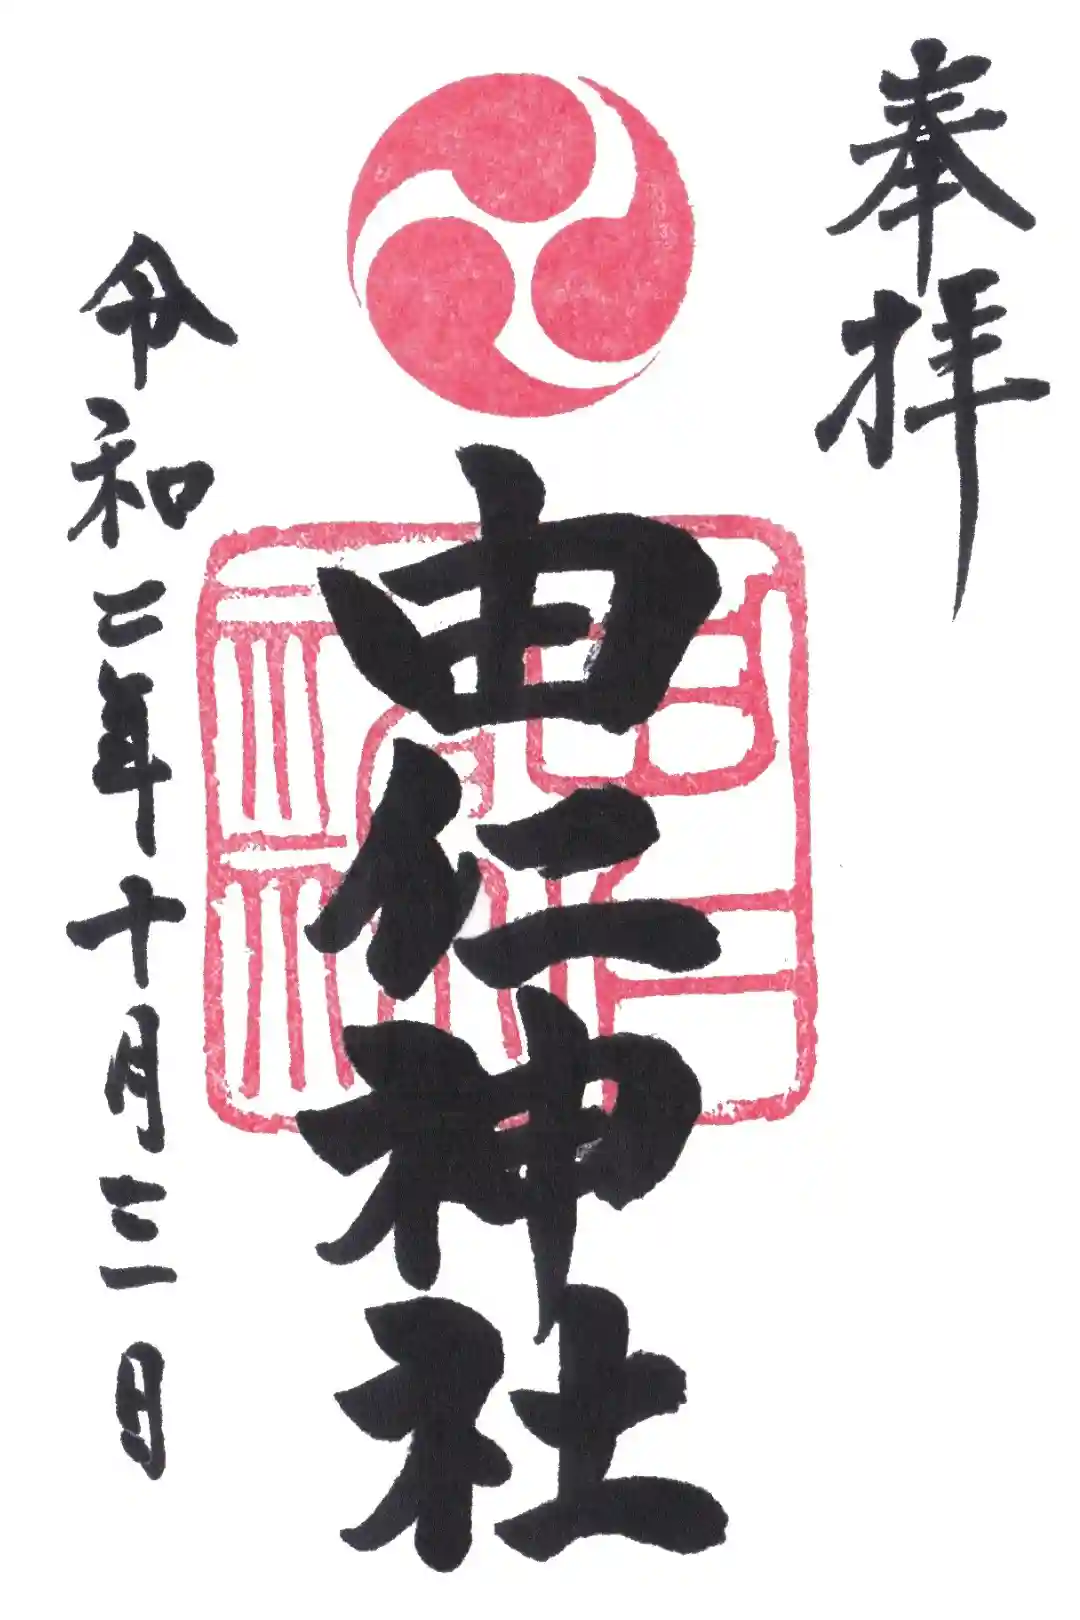 奉拝
由仁神社
令和二年十月三日